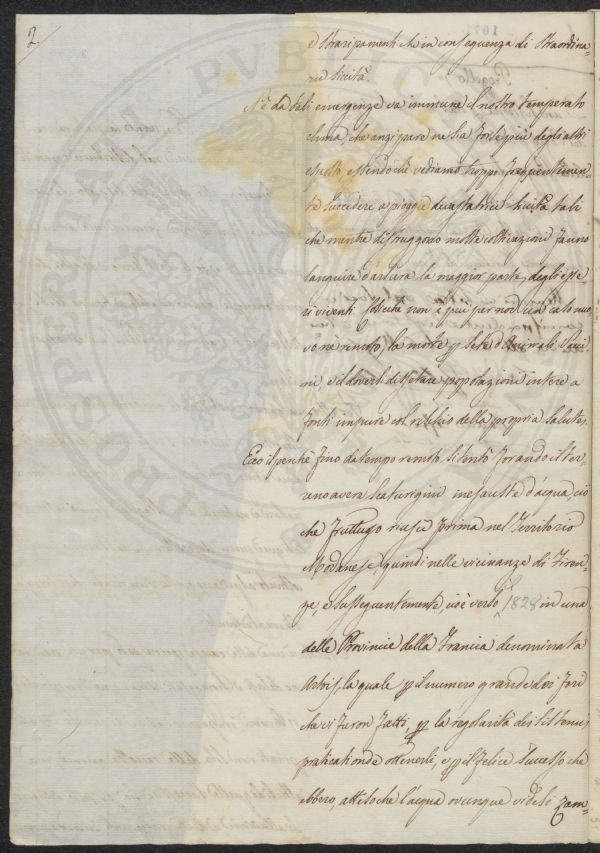 2
e straripamenti che in conseguenza di straordina=
rie siccità.
Nè da tali emergenze va immune il nostro temperato
clima, che anzi pare ne sia forse più degli altri
esposto essendochè vediamo troppo frequentemen=
te succedere a pioggie devastatrici siccità tali
che mentre distruggono molte coltivazioni fanno
languire d'arsura la maggior parte degli esse
ri viventi sicchè non è più per noi un caso nuo
vo ne remoto, la morte p sete d'Animali Bovi=
ni, ed il doversi dissetare popolazioni intere a
fonti impure col rischio della propria salute.
Ecco il perchè fino da tempo remoto si tentò forando il ter=
reno avere scaturigini inesauste d'acqua, ciò
che fruttuoso riuscì prima nel Territorio
Modanese, quindi nelle vicinanze di Firen=
ze, e susseguentemente, cioè verso il 1828 in una
delle Provincie della Francia denominata
Artois, la quale p il numero grande dei fori
che vi furon fatti, p la regolarità dei sistemi
praticati onde ottenerli, e p il felice successo che
ebbero, attesochè l'acqua ovunque videsi zam=